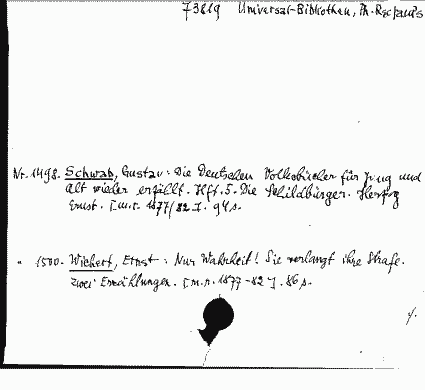 73819 Universal-Bibliothek, Ph. Reclam's
Nr. 1498. Schwab, Gustav: Die Deutschen Volksbücher für Jung und
Alt wieder erzählt. Hft. 5. Die Schildbürger. Herzog
Ernst. [u.r. 1877/82]. 94 s.
" 1500. Wichert, Ernst: Nur Wahrheit! Sie verlangt ihre Strafe.
Zwei Erzählungen. [u.r. 1877-82]. 86 s.